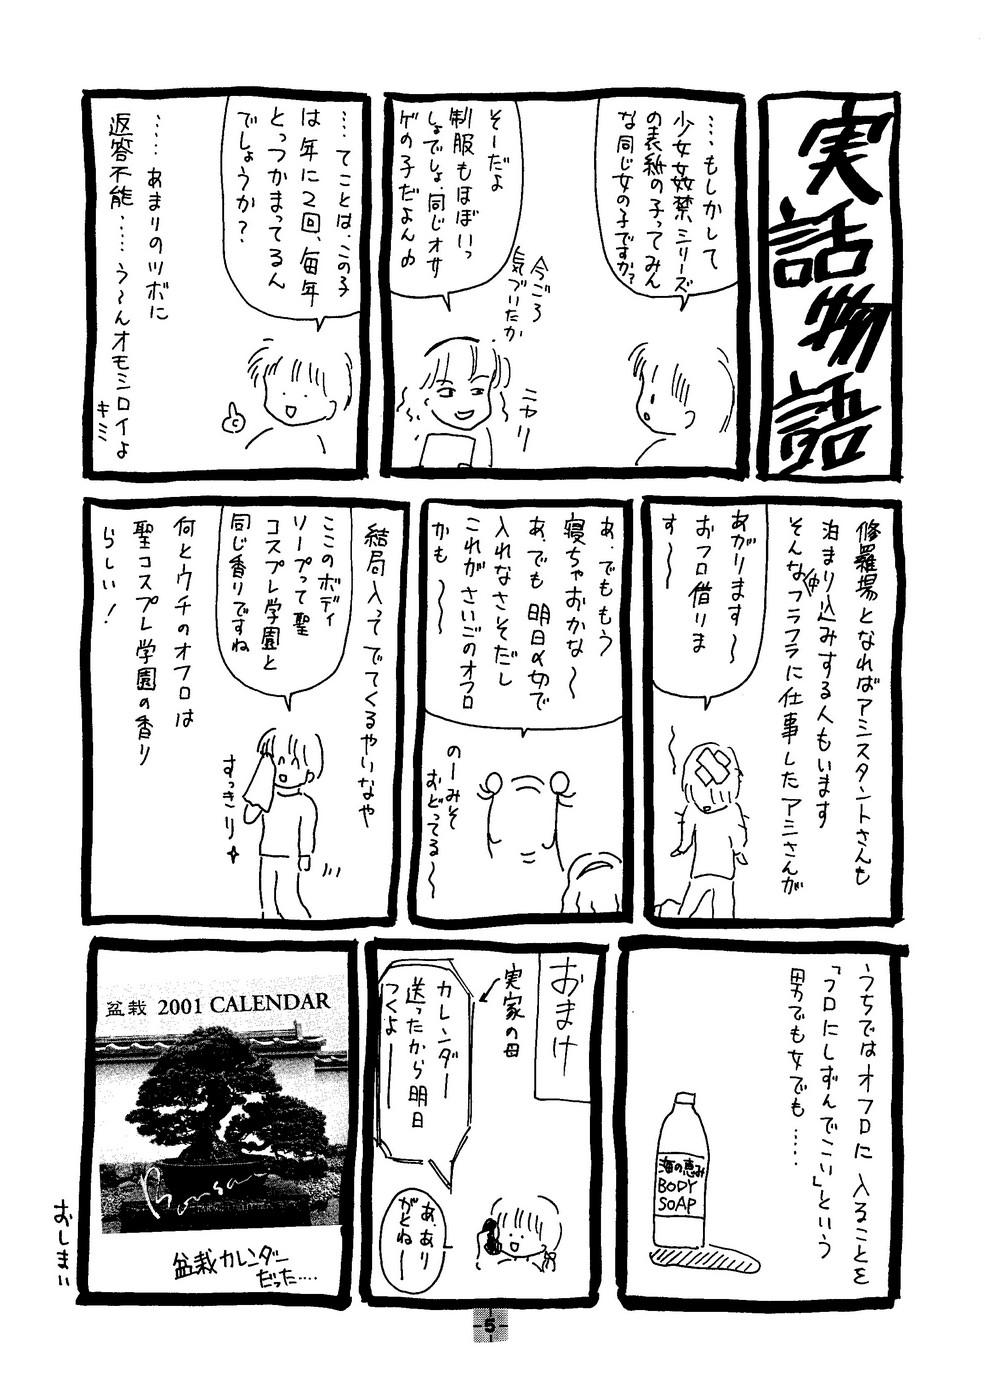 実話物語
……もしかして
少女姦禁シリーズ
の表紙の子ってみん
な同じ女の子ですか?
今ごろ
気づいたか
そーだよ
制服もほぼいっ
しょでしょ、同じオサ
ゲの子だよん
ニヤリ
……てことは、この子
は年に2回、毎年
とっつかまってるん
でしょうか?
……あまりのツボに
返答不能……う〜んオモシロイよ
キミ
修羅場となればアシスタントさんも
泊まり込みする人もいます
そんな中フラフラに仕事したアシさんが
あがります〜
おフロ借りま
す〜
あ、でももう
寝ちゃおかな〜
あ、でも明日〆切で
入れなさそだし
これがさいごのオフロ
かも〜〜
のーみそ
おどってる〜
結局入ってでてくるやいなや
ここのボディ
ソープって聖
コスプレ学園と
同じ香りですね
すっきり
何とウチのオフロは
聖コスプレ学園の香り
らしい!
うちではオフロに入ることを
「フロにしずんでこい」という
男でも女でも……
海の恵み
BODY
SOAP
おまけ
実家の母
カレンダー
送ったから明日
つくよー
あ、あり
がとねー
盆栽 2001 CALENDAR
Bonsai
盆栽カレンダー
だった….
おしまい
5